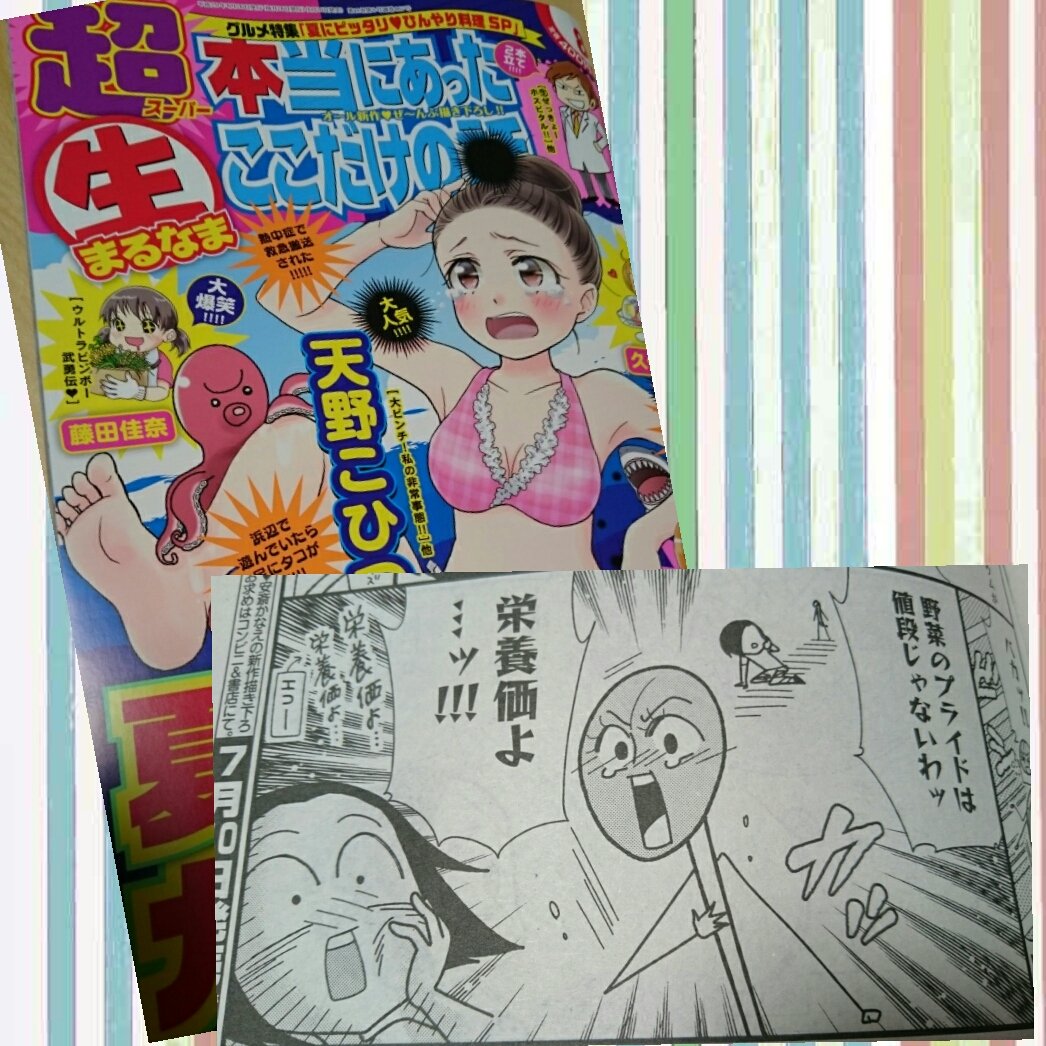 グルメ特集「夏にピッタリ♥ひんやり料理SP」
超
スーパー
本当にあった
オール新作♥ぜ〜んぶ描き下ろし!!
ここだけの話
生
まるなま
2本立て!!!!
「生ぜっきょーホスピタル!!」他
熱中症で
救急搬送
された!!!!!
大爆笑!!!!
大人気!!!!
[ウルトラビンボー
武勇伝♥]
藤田佳奈
天野こひつ
[大ピンチ!私の非常事態!!]他
久
浜辺で
遊んでいたら
タコが
夏
野菜のプライドは
値段じゃないわッ
栄養価よ
…ッ!!!
栄養価よ…
栄養価よ…
エコー
ガッ
♥安斎かなえの新作描き下ろ
お求めはコンビニ&書店にて。
7月